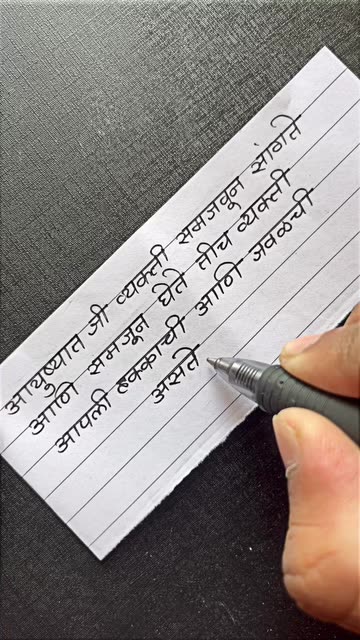 आयुष्यात जी व्यक्ती समजवून सांगते
आणि समजून घेते तीच व्यक्ती
आपली हक्काची आणि जवळची
असते